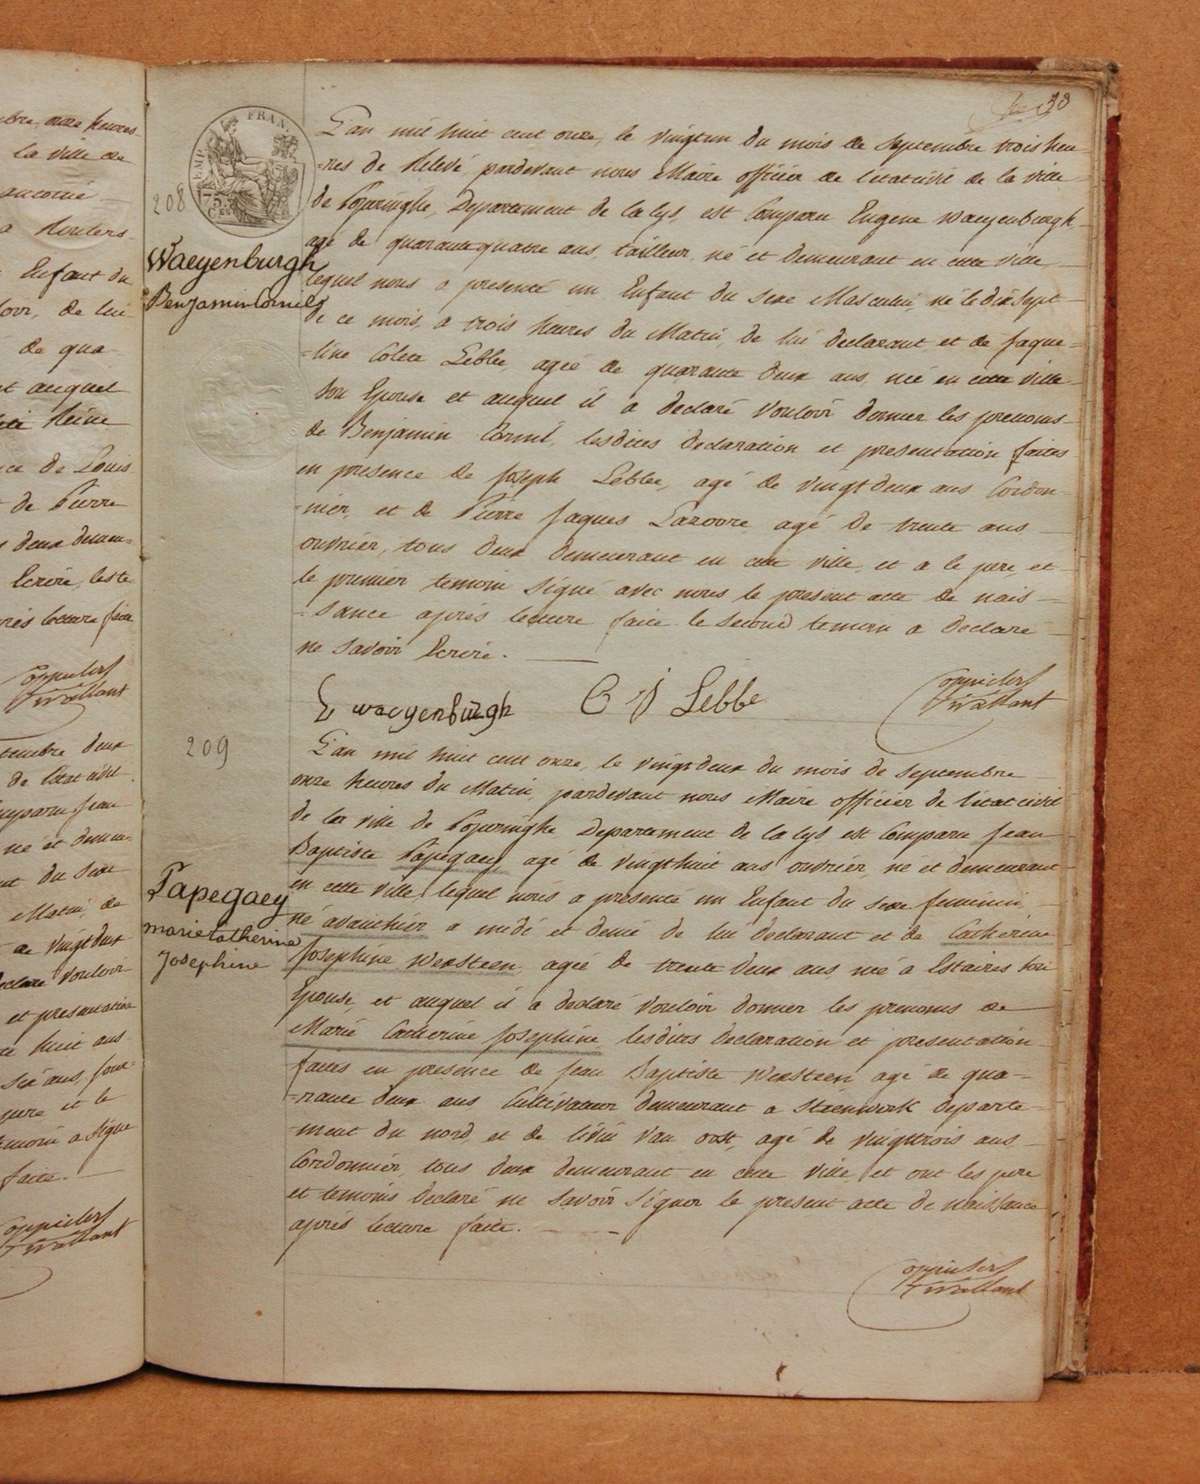 bre, onze heures
la ville de
Enfant du
de lui
de qua
et auquel
ce de Louis
de Pierre
deux demeu=
Ecrire, les te
près lecture faite
tembre deux
de l'état civil
comparu jean
né et demeu-
du sexe
Matin, de
de vingt deux
declaré vouloir
et presentation
huit ans
six ans, jour-
pere et le
temoin a signé
faite.
38
EMP. FRAN.
75
208
Waeyenburgh
Benjamin Cornil
L'an mil huit cent onze, le vingtun du mois de Septembre trois heu
=res de Relevé pardevant nous Maire officier de l'état civil de la ville
de Poperinghe, Departement de la lys, est Comparu Eugene Waeyenburgh
agé de quarantequatre ans, tailleur, né et demeurant en cette ville
lequel nous a presenté un Enfant du sexe Masculin, né le dix sept
de ce mois, a trois heures du Matin, de lui declarant et de jaque=
=line Colete Lebbe, agée de quarante deux ans, née en cette ville
son Epouse et auquel il a declaré vouloir donner les prenoms
de Benjamin Cornil, lesdites declaration et presentation faites
en presence de joseph Lebbe, agé de vingtdeux ans Cordon
=nier, et de Pierre jaques agé de trente ans
ouvrier, tous deux demeurant en cette ville, et a le pere, et
le premier temoin signé avec nous le present acte de nais=
=sance après lecture faite le second temoin a declaré
ne savoir Ecrire.
E waeyenburgh
C J Lebbe
209
Papegaey
marie Catherine
Josephine
L'an mil huit cent onze, le vingtdeux du mois de Septembre
onze heures du Matin, pardevant nous Maire officier de l'état civil
de la ville de Poperinghe Departement de la lys est Comparu jean
Baptiste Papegaey, agé de vingthuit ans ouvrier, né et demeurant
en cette ville, lequel nous a presenté un Enfant du sexe feminin,
né avanthier a midi et demie de lui declarant et de Catherine
josephine Wexsteen, agée de trente deux ans née a Estaires son
Epouse, et auquel il a declaré vouloir donner les prenoms de
Marie Catherine josephine lesdites declaration et presentation
faites en presence de jean Baptiste Wexsteen agé de qua=
=rante deux ans Cultivateur demeurant a Steenwerk departe=
=ment du nord, et de livin van oost, agé de vingttrois ans
Cordonnier, tous deux demeurant en cette ville, et ont les pere
et temoins declaré ne savoir signer le present acte de naissance
après lecture faite.